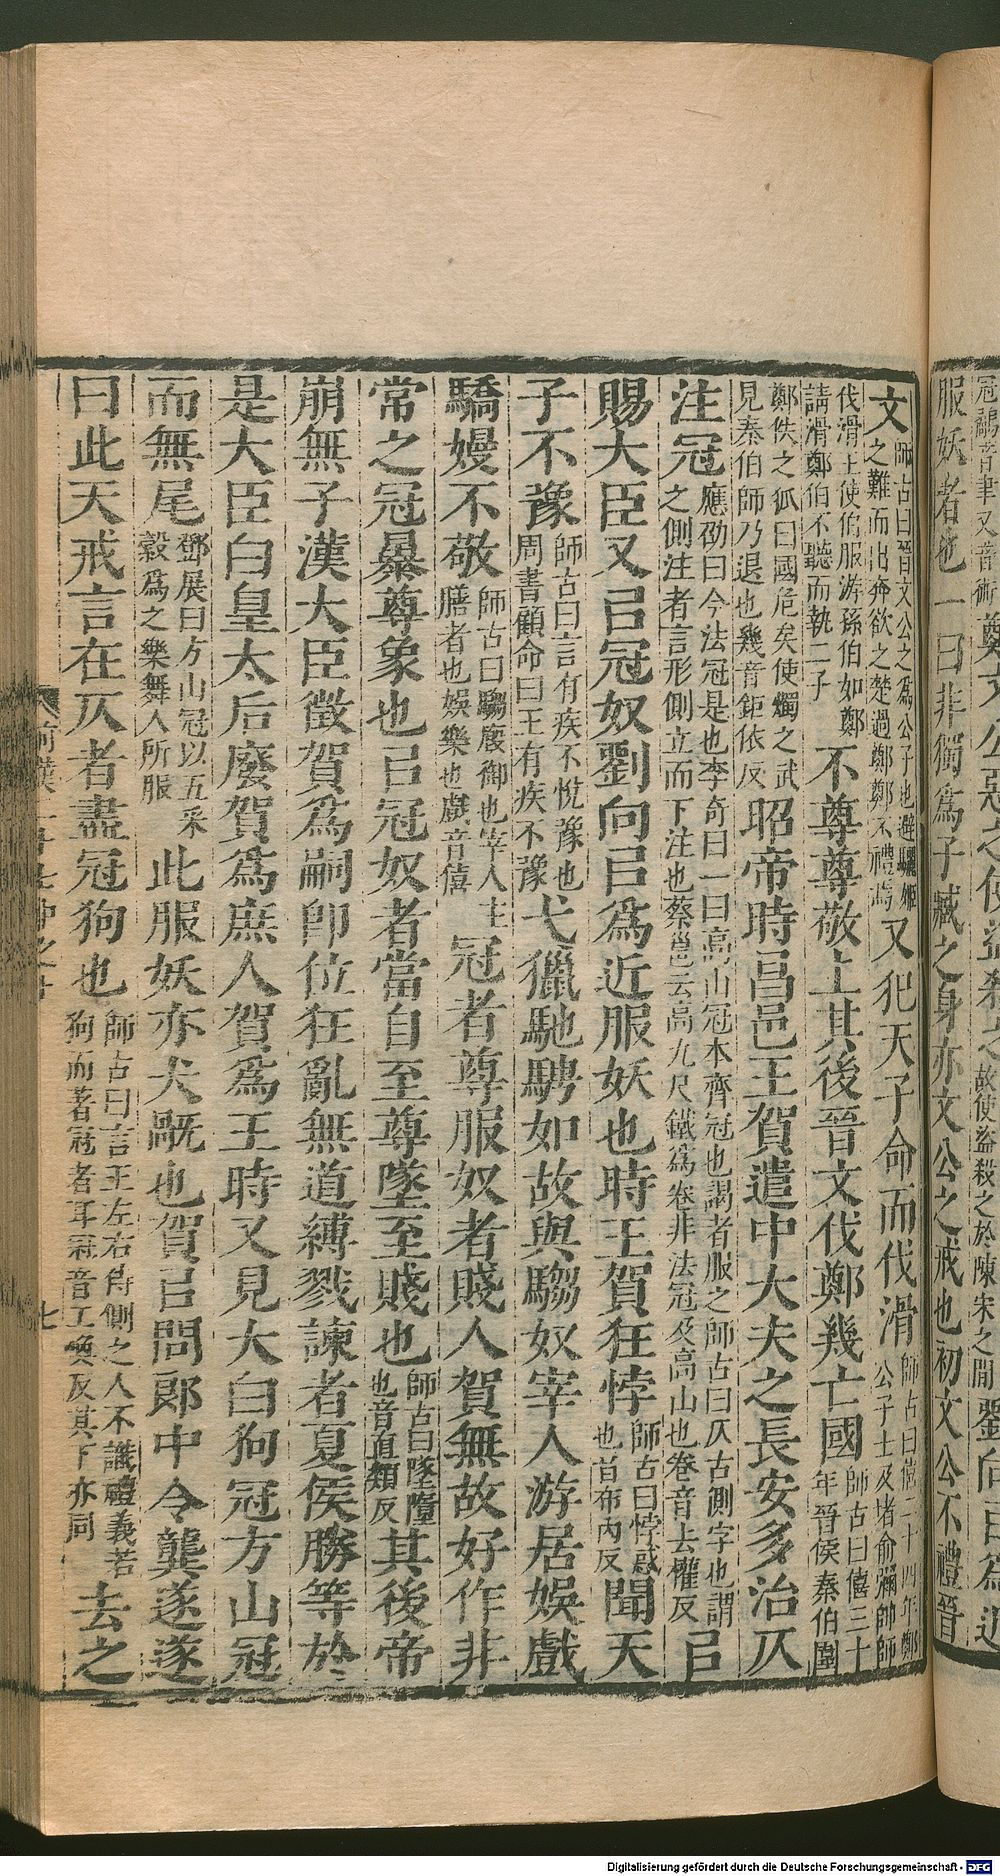 冠鷸音聿又音術鄭文公惡之使盜殺之故使盜殺之於陳宋之間劉向㠯爲近
服妖者也一曰非獨爲子臧之身亦文公之戒也初文公不禮晉
文師古曰晉文公之爲公子也避驪姬之難而出奔欲之楚過鄭鄭不禮焉又犯天子命而伐滑師古曰僖二十四年鄭公子士及堵俞彌帥師
伐滑王使伯服游孫伯如鄭請滑鄭伯不聽而執二子不尊尊敬上其後晉文伐鄭幾亡國師古曰僖三十年晉侯秦伯圍
鄭佚之狐曰國危矣使燭之武見秦伯師乃退也幾音鉅依反昭帝時昌邑王賀遣中大夫之長安多治仄
注冠應劭曰今法冠是也李奇曰一曰高山冠本齊冠也謁者服之師古曰仄古側字也謂之側注者言形側立而下注也蔡邕云高九尺鐵爲卷非法冠及高山也卷音去權反㠯
賜大臣又㠯冠奴劉向㠯爲近服妖也時王賀狂悖師古曰悖惑也音布內反聞天
子不豫師古曰言有疾不悅豫也周書顧命曰王有疾不豫弋獵馳騁如故與騶奴宰人游居娛戲
驕嫚不敬師古曰騶廄御也宰人主膳者也娛樂也戲音僖冠者尊服奴者賤人賀無故好作非
常之冠暴尊象也㠯冠奴者當自至尊墜至賤也師古曰墜墮也音直類反其後帝
崩無子漢大臣徵賀爲嗣卽位狂亂無道縛戮諫者夏侯勝等於
是大臣白皇太后廢賀爲庶人賀爲王時又見大白狗冠方山冠
而無尾鄧展曰方山冠以五采縠爲之樂舞人所服此服妖亦犬旤也賀㠯問郎中令龔遂遂
曰此天戒言在仄者盡冠狗也師古曰言王左右侍側之人不識禮義若狗而著冠者耳冠音工喚反其下亦同去之
七
Digitalisierung gefördert durch die Deutsche Forschungsgemeinschaft - DFG